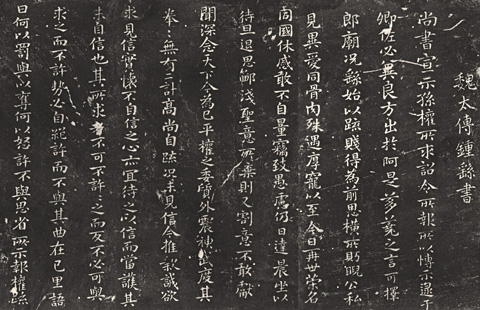 魏太傅鍾繇書
尚書宣示孫權所求詔令所報所以博示逮于
卿佐必冀良方出於阿是芻蕘之言可擇
郎廟況繇始以疏賤得為前思橫所盼睨公私
見異愛同骨肉殊遇厚寵以至今日再世榮名
同國休慼敢不自量竊致愚慮仍日達晨坐以
待旦退思鄙淺聖意所棄則又割意不敢獻
聞深念天下今為已平權之委質外震神武度其
拳〻無有二計高尚自疏況未見信今推款誠欲
求見信實懷不自信之心亦宜待之以信而當護其
未自信也其所求者不可不許〻之而反不必可與
求之而不許勢必自絕許而不與其曲在己里語
曰何以罰與以奪何以怒許不與思省所示報權疏